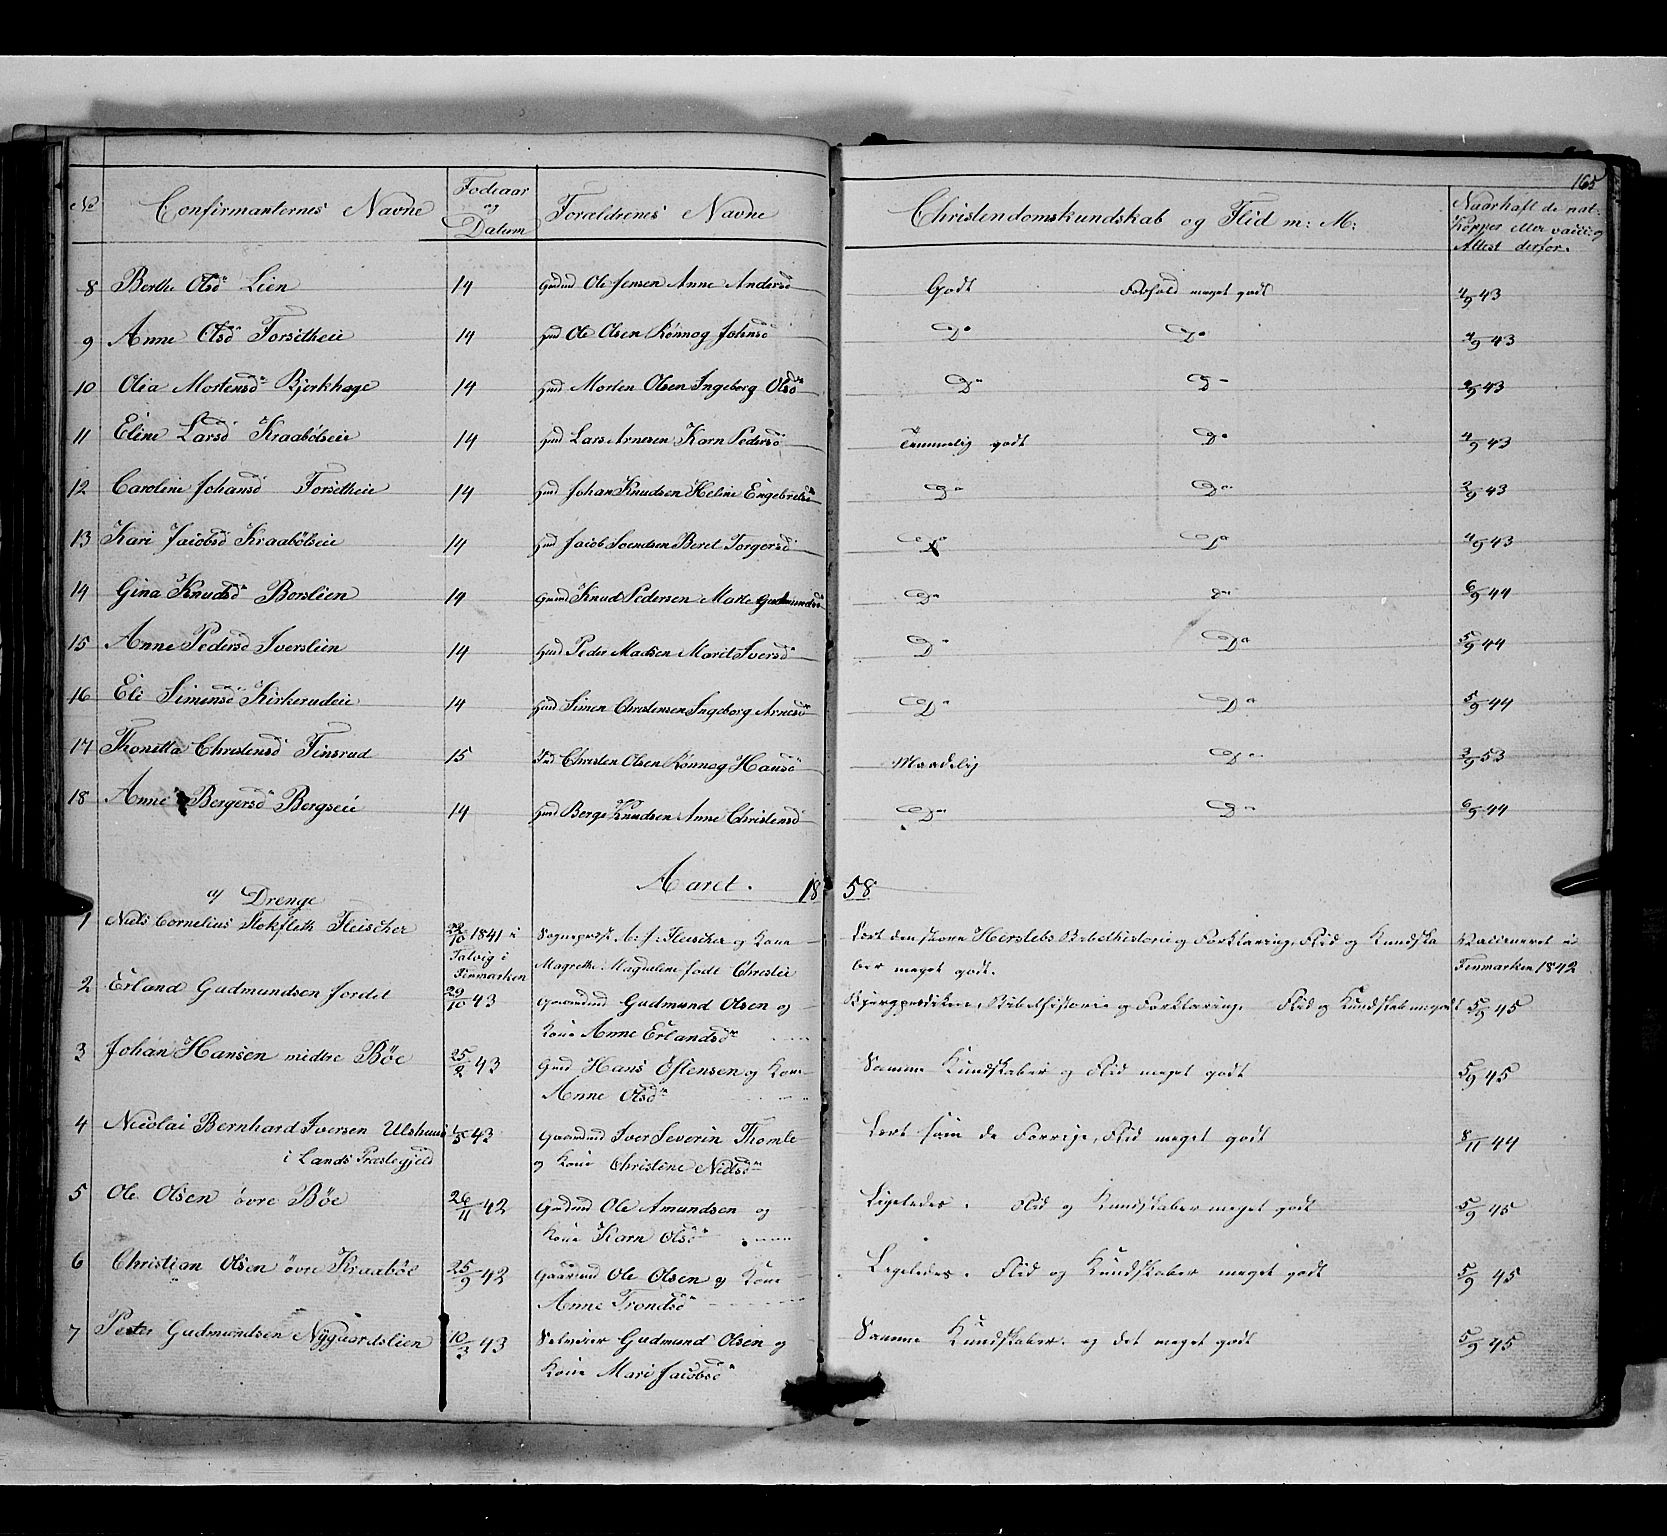 165
No Confirmanternes Navne Fodeaar og Datum Foraldrenes Navne Christendomskundskab og Flid m: M: Naarhaft de nat: Kopper eller vacci: og Attest derfor.
8 Berthe Olsd Lien 14 Ole Jensen Anne Andersd Godt Forhold meget godt 43
9 Anne Olsd Forsetheie 14 Hmd Ole Olsen Rønnog Johnsd Do Do 4/9 43
10 Olia Mortensd Bjerkhage 14 Hmd Morten Olsen Ingeborg Olsd Do Do 43
11 Eline Larsd Kraabölseie 14 Hmd Lars Arnesen Karn Pedersd Temmelig godt Do 4/9 43
12 Caroline Johansd Forsetheie 14 Hmd Johan Knudsen Heline Engebretsd Do Do 3/9 43
13 Kari Jacobsd Kraabölseie 14 Hmd Jacob Svendsen Beret Torgersd Do Do 4/9 43
14 Gina Knudsd Borslien 14 Knud Pedersen Marte Gudmundsd Do Do 6/9 44
15 Anne Pedersd Iverslien 14 Hmd Peder Madsen Marit Iversd Do Do 5/9 44
16 Eli Simensd Kirkerudeie 14 Hmd Simen Christensen Ingeborg Arnesd Do Do 5/9 44
17 Thonetta Christensd Finsrud 15 Christen Olsen Rønnog Hansd Maadelig Do 3/9 53
18 Anne Bergersd Bergseie 14 Hmd Berge Knudsen Anne Christensd Do Do 6/9 44
Aaret. 18 58
a) Drenge
1 Niels Cornelius Stokfleth Fleischer 22/10 1841 i Sognepræst A. J. Fleischer og Kone Læst den store Herslebs Bibelhistorie og Forklaring, Flid og Kundska Vaccineret i
Talvig i Finmarken Magrethe Magdalene født Christie ber meget godt. Finmarken 1842
2 Erland Gudmundsen Jordet 29/10 43 Gaardmd Gudmund Olsen og Bibelhistorie og Forklaring. Flid og Kundskab meget 5/9 45
Kone Anne Erlandsd
3 Johan Hansen midtre Böe 25/2 43 Gmd Hans Estensen og Kone Samme Kundskaber og Flid meget godt 5/9 45
Anne Olsd
4 Nicolai Bernhard Iversen Ulshuus 43 Gaardmd Iver Severin Thomle Læst som de Forrige, Flid meget godt 8/11 44
i Lands Præstegjeld og Kone Christine Nielsd
5 Ole Olsen övre Böe 26/11 42 Ole Amundsen og Ligeledes. Flid og Kundskaber meget godt 5/9 45
Kone Karn Olsd
6 Christian Olsen övre Kraaböl 25/9 42 Gaardmd Ole Olsen og Kone Ligeledes. Flid og Kundskaber meget godt 5/9 45
Anne Trondsd
7 Peter Gudmundsen Nygaardslien 10/3 43 Selveier Gudmund Olsen og Samme Kundskaber og det meget godt 5/9 45
Kone Mari Jacobsd